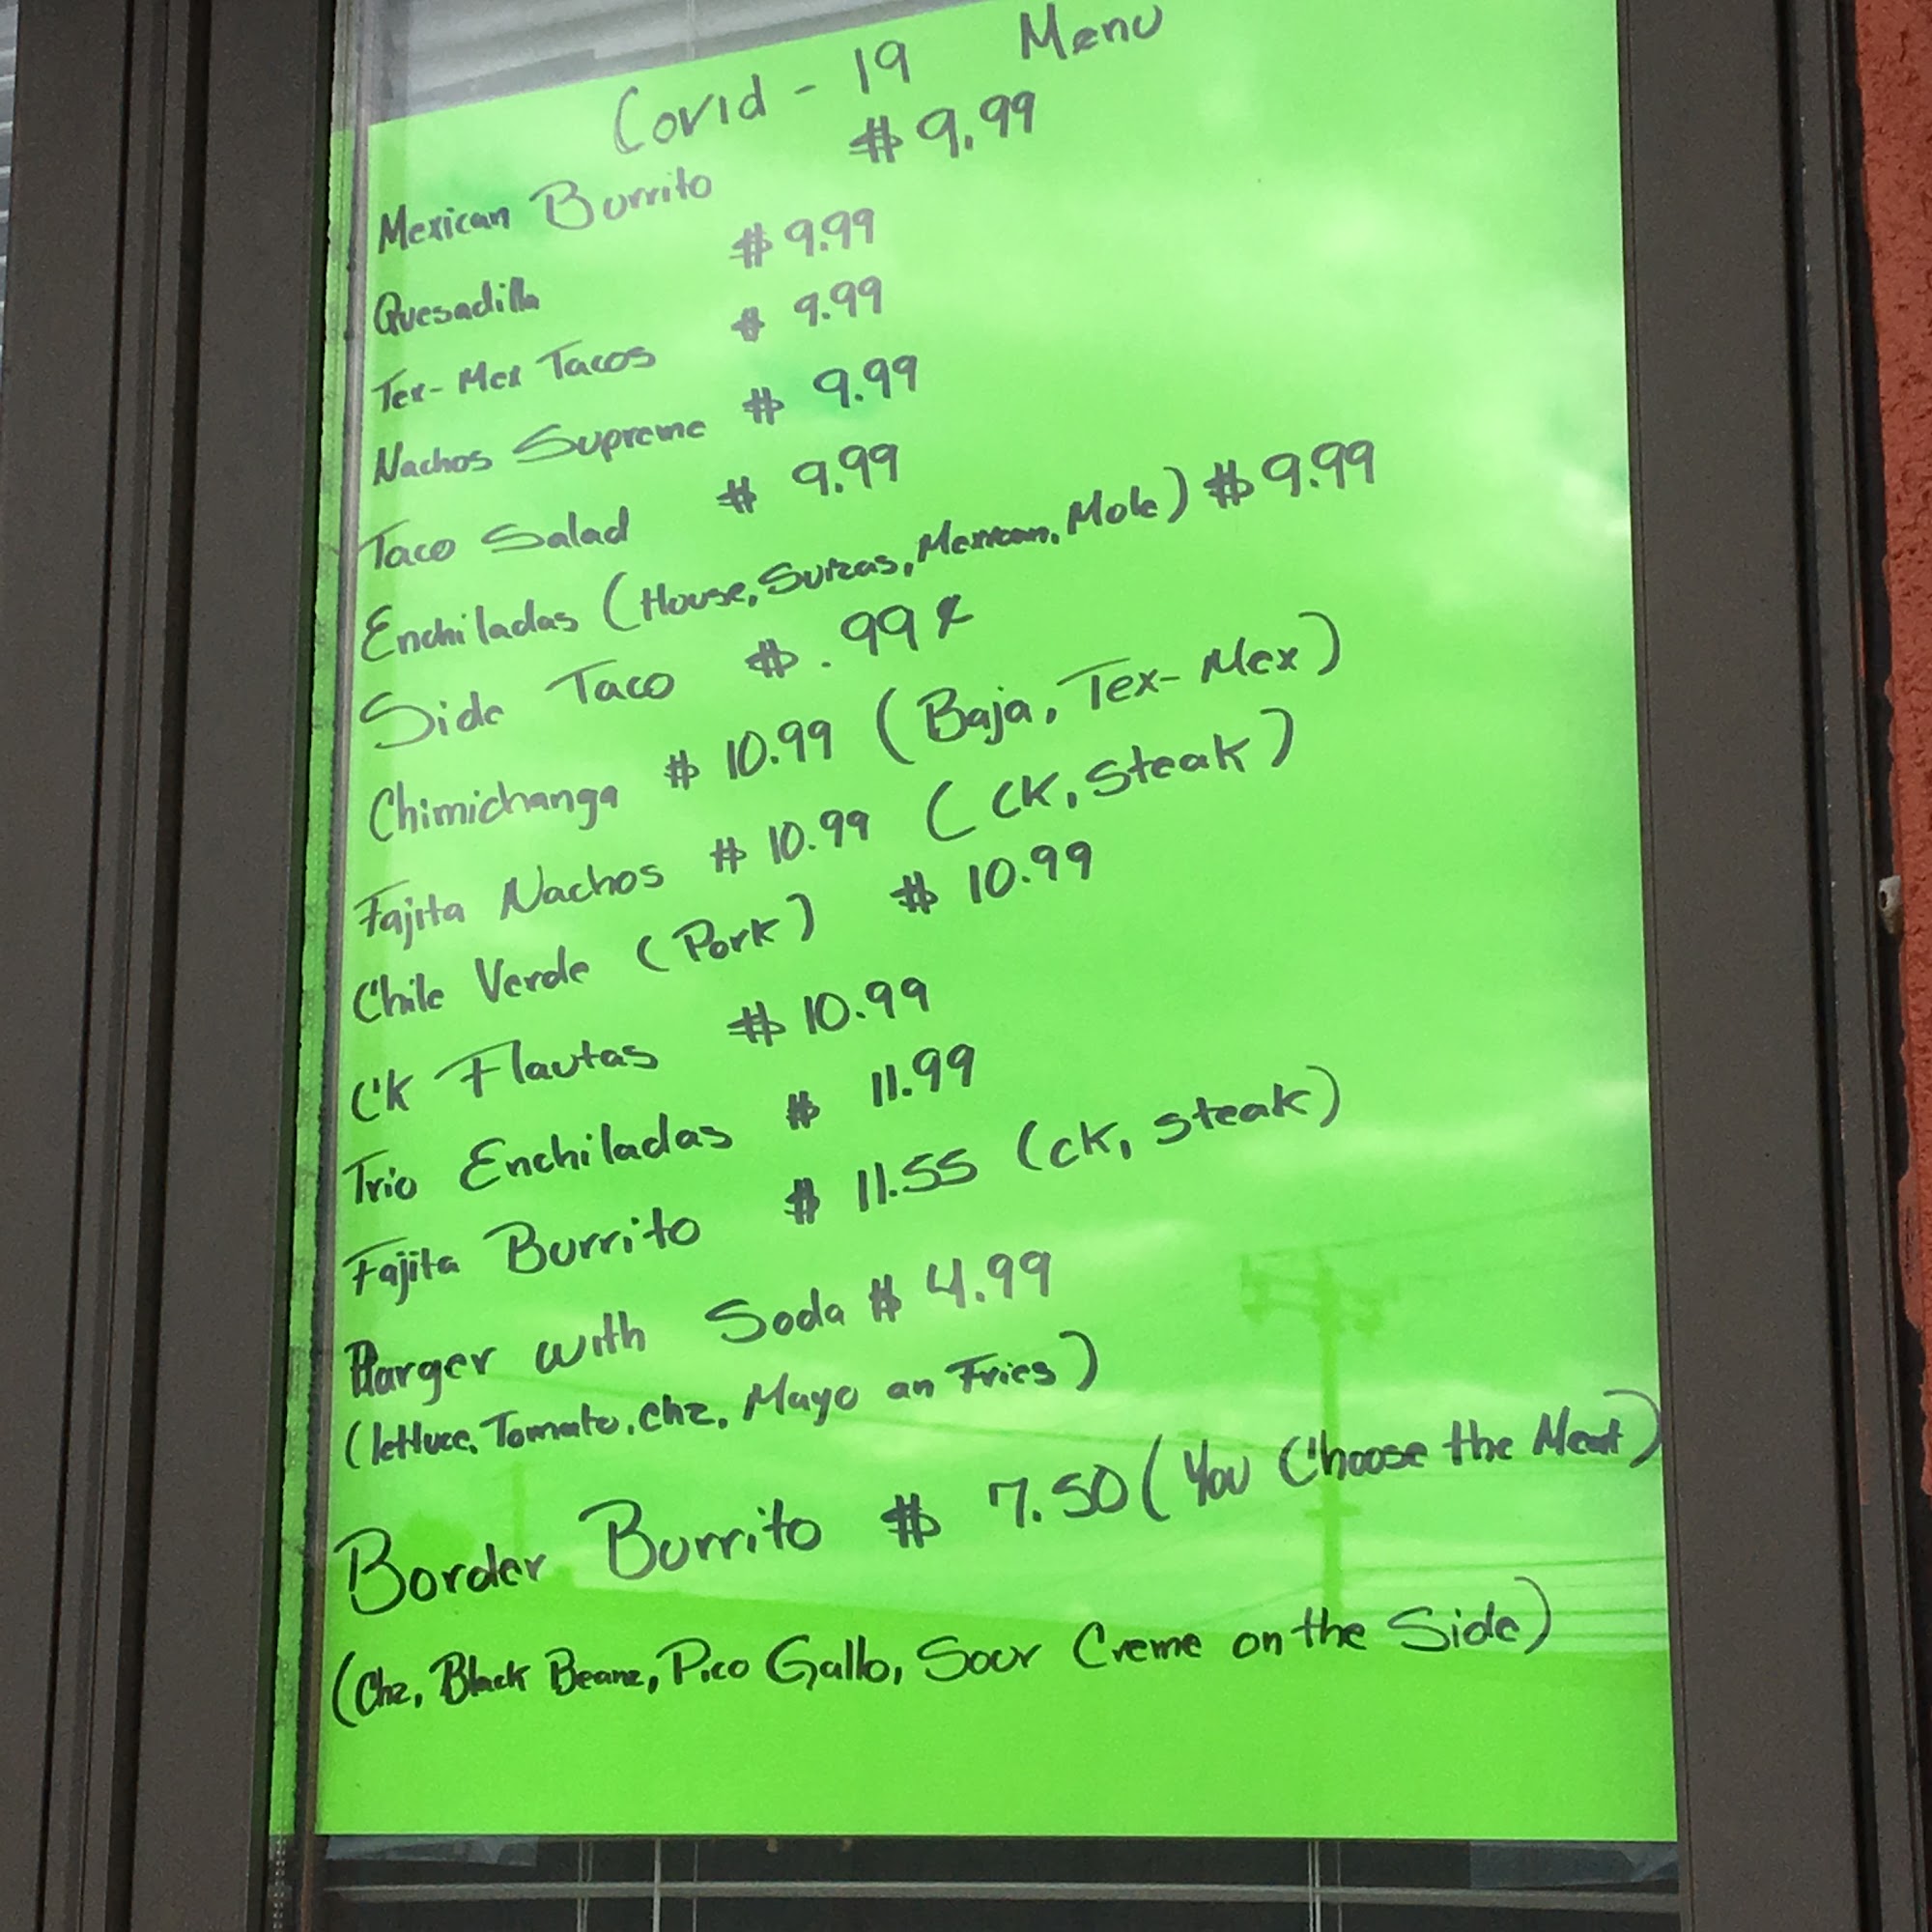 Covid - 19 Menu
Mexican Burrito $9.99
Quesadilla $9.99
Tex-Mex Tacos $ 9.99
Nachos Supreme $ 9.99
Taco Salad $ 9.99
Enchiladas (House, Suizas, Mexican, Mole) $9.99
Side Taco $ .99¢
Chimichanga $ 10.99 (Baja, Tex-Mex)
Fajita Nachos $ 10.99 (CK, Steak)
Chile Verde (Pork) $ 10.99
CK Flautas $10.99
Trio Enchiladas $ 11.99
Fajita Burrito $ 11.55 (ck, steak)
Barger with Soda $ 4.99
(lettuce, Tomato, chz, Mayo an Fries)
Border Burrito $ 7.50 (You Choose the Meat)
(Chz, Black Beanz, Pico Gallo, Sour Creme on the Side)